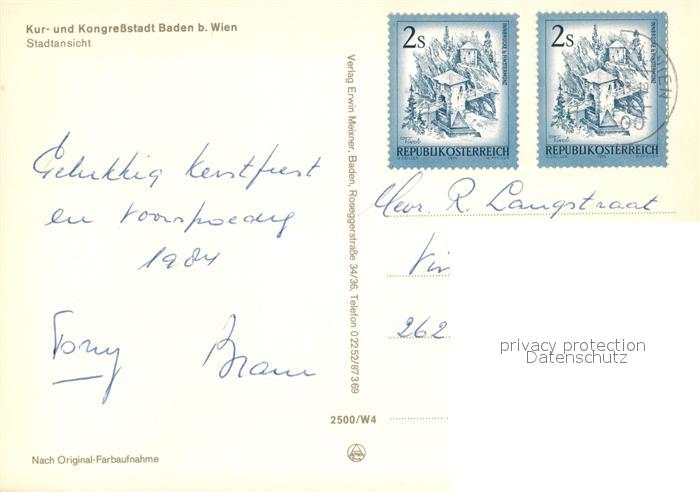 Kur- und Kongreßstadt Baden b. Wien
Stadtansicht
Gelukkig Kerstfeest
en voorspoedig
1984
Tony Bram
Nach Original-Farbaufnahme
Verlag Erwin Meixner, Baden, Roseggerstraße 34/36, Telefon 0 22 52/87 3 69
2500/W4
2s
REPUBLIK ÖSTERREICH
2s
REPUBLIK ÖSTERREICH
WIEN
Mevr. R. Langstraat
262
privacy protection
Datenschutz